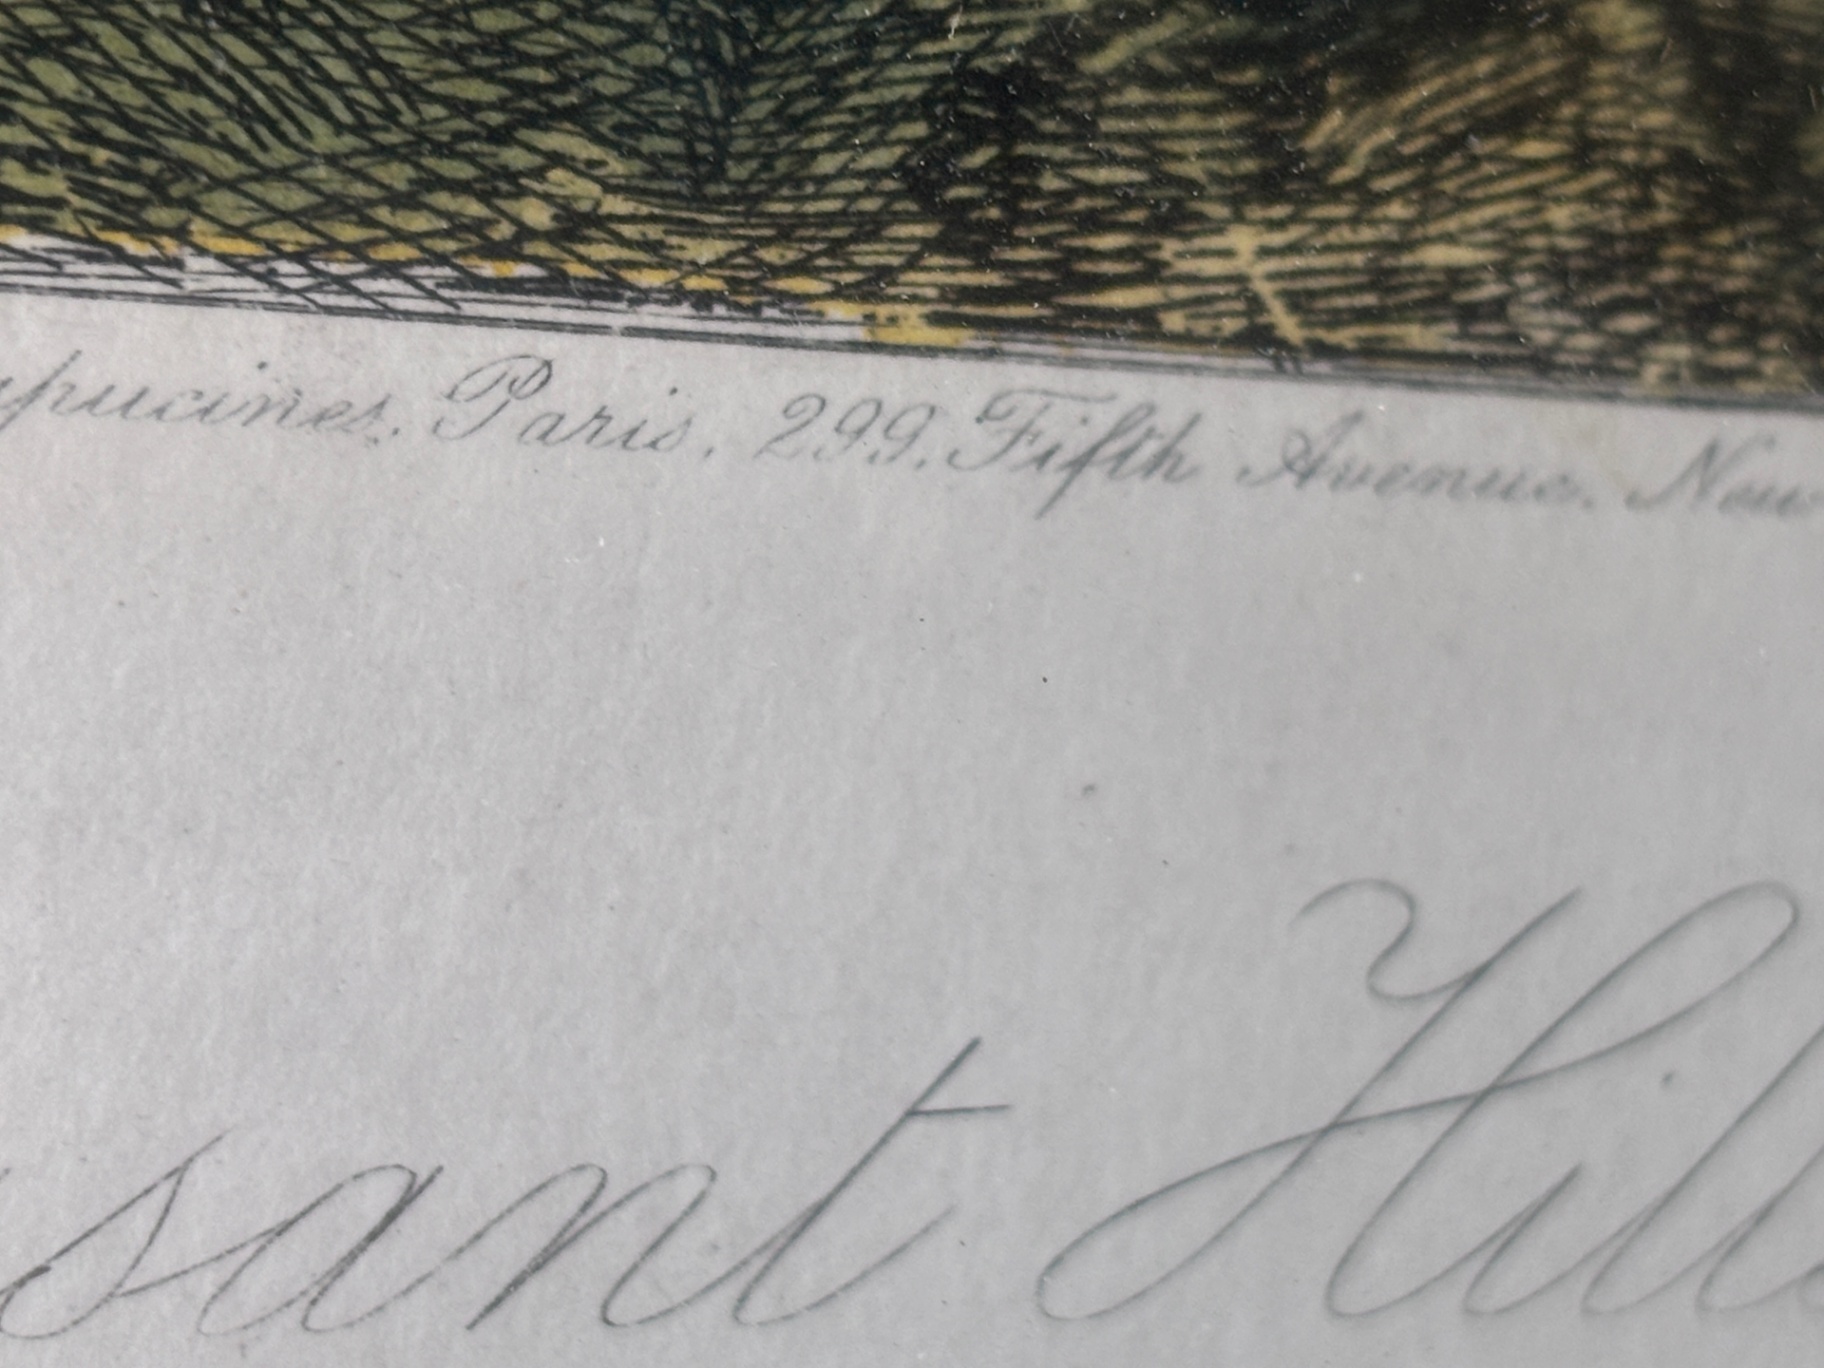 pucines. Paris. 299. Fifth Avenue. New
sant Hill